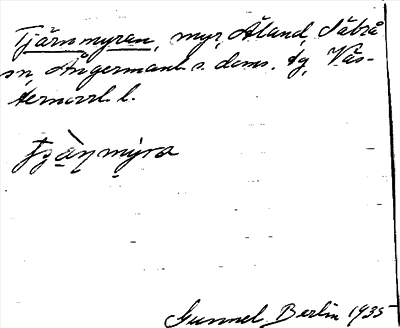 Tjärnmyran, myr, Åland, Säbrå
sn, Ångermanl. s. doms. tg, Väs-
ternorrl. l.
Gunnel Berlin 1935